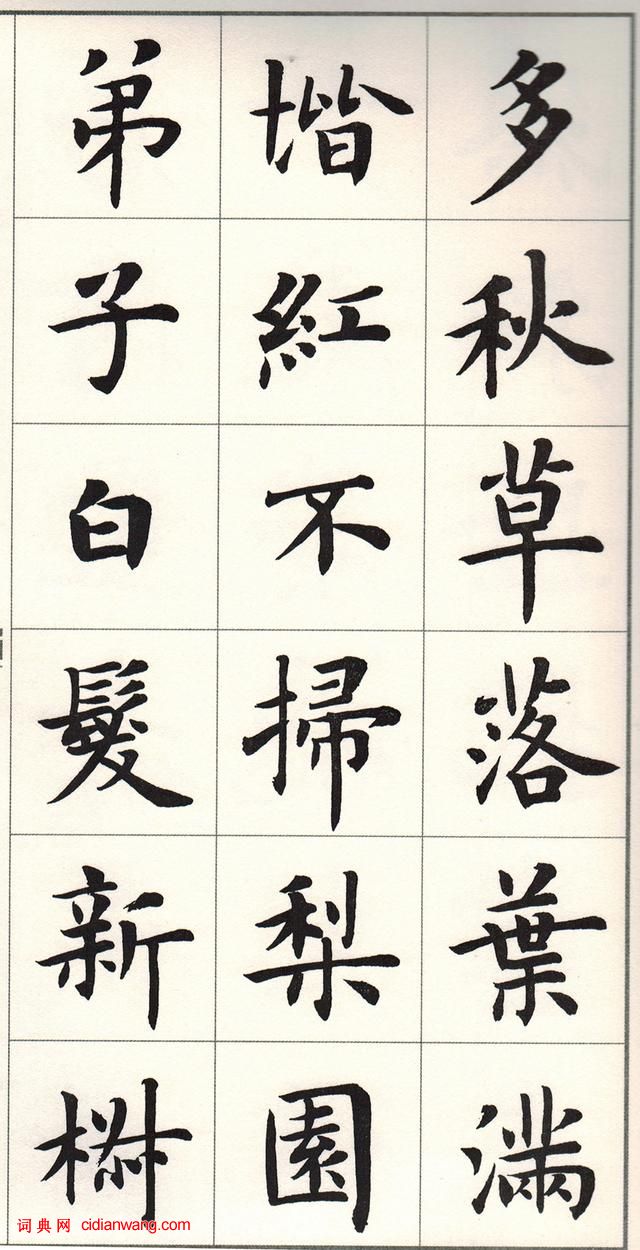 多秋草落葉滿
堦紅不掃梨園
弟子白髮新椒
词典网 cidianwang.com